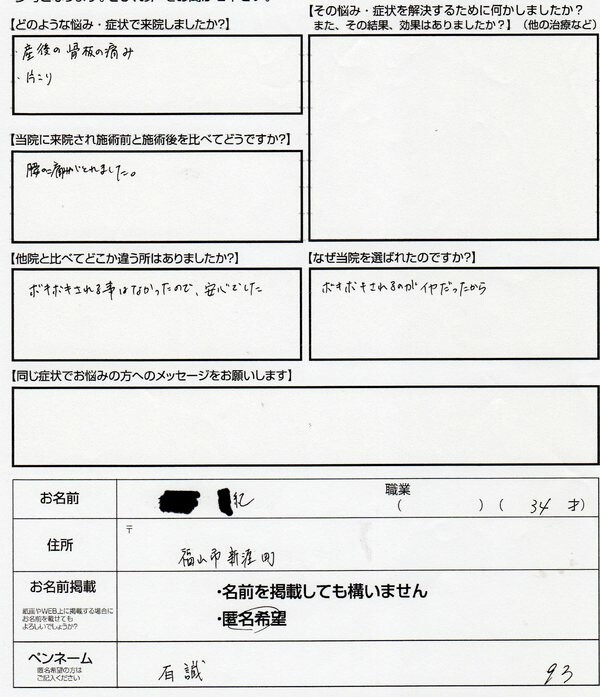 【どのような悩み・症状で来院しましたか?】
・産後の骨板の痛み
・肩こり
【その悩み・症状を解決するために何かしましたか?
また、その結果、効果はありましたか?】（他の治療など）
【当院に来院され施術前と施術後を比べてどうですか?】
腰の痛みがとれました。
【他院と比べてどこか違う所はありましたか?】
ボキボキされる事はなかったので、安心でした
【なぜ当院を選ばれたのですか?】
ボキボキされるのがイヤだったから
【同じ症状でお悩みの方へのメッセージをお願いします】
お名前 紀 職業 （ ）（ 34 才）
住所 〒 福山市新涯町
お名前掲載
紙面やWEB上に掲載する場合に
お名前を載せても
よろしいでしょうか?
・名前を掲載しても構いません
・匿名希望
ペンネーム
匿名希望の方は
ご記入ください
93